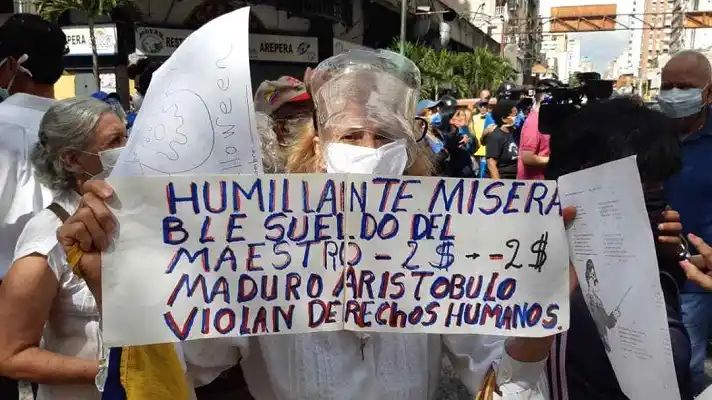 REST
AREPERA
AREPERA
Halloween
HUMILLANTE MISERA
BLE SUELDO DEL
MAESTRO - 2$ → - 2$
MADURO ARISTOBULO
VIOLAN DERECHOS HUMANOS.